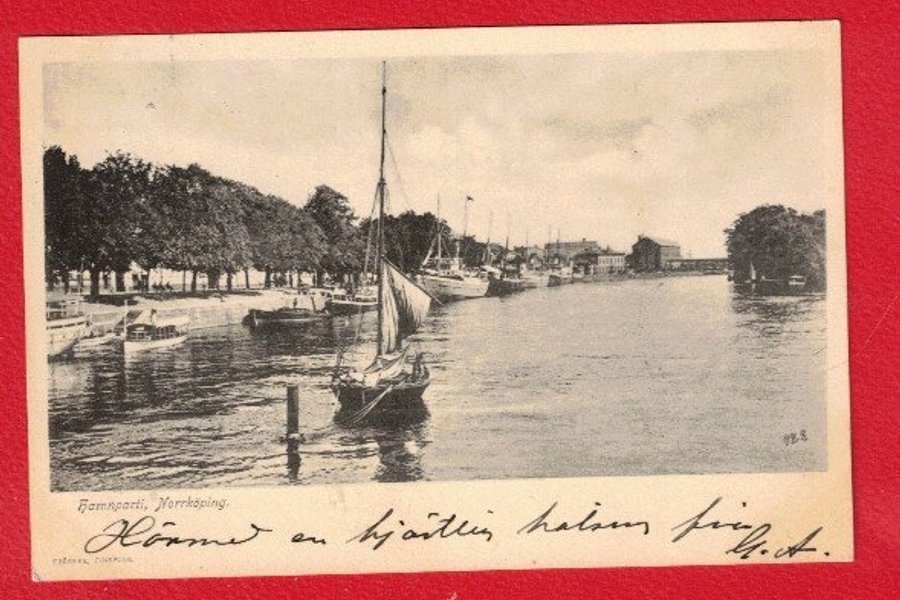 Hamnparti, Norrköping.
Härmed en hjärtlig halsning från
G. A.